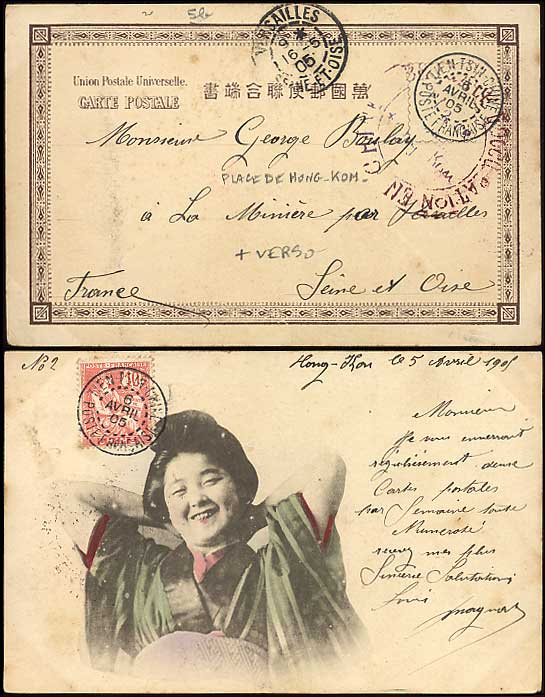 5b
VERSAILLES
16
05
SEINE-ET-OISE
Union Postale Universelle.
CARTE POSTALE
萬國郵便聯合端書
TIEN-TSIN-CHINE
6
AVRIL
05
POSTE FRANÇAISE
CHI
OCCUPATION EN
Monsieur George Boulay
PLACE DE HONG-KOM.
à La Minière par Versailles
+ VERSO
Seine et Oise
France
No 2
Hong-Khou le 5 Avril 1905
POSTE FRANÇAISE
10
TIEN-TSIN-CHINE
6
AVRIL
05
POSTE FRANÇAISE
Monsieur
Je vous enverront
régulièrement deux
Cartes postales
par Semaine toute
Numeroté
recevez mes plus
Sincère Salutations